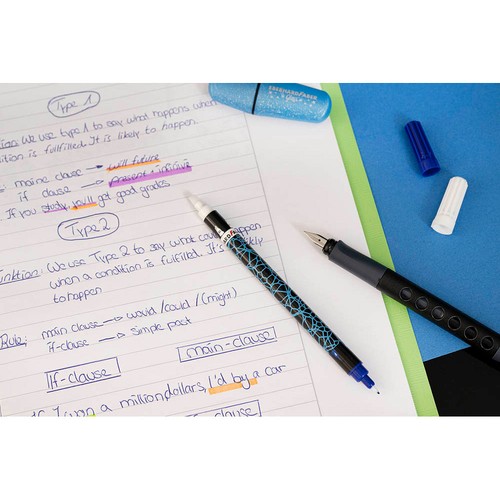 Type 1
We use type 1 to say what happens when
condition is fulfilled. It is likely to happen.
maine clause → will future
if clause → present + infinitive
If you study, you'll get good grades.
Type 2
Funktion: We use Type 2 to say what could happen
when a condition is fulfilled. It's
to happen
Rule: main clause → would / could / (might)
if-clause → simple past
main-clause
If-clause
a million dollars, I'd by a car
clause